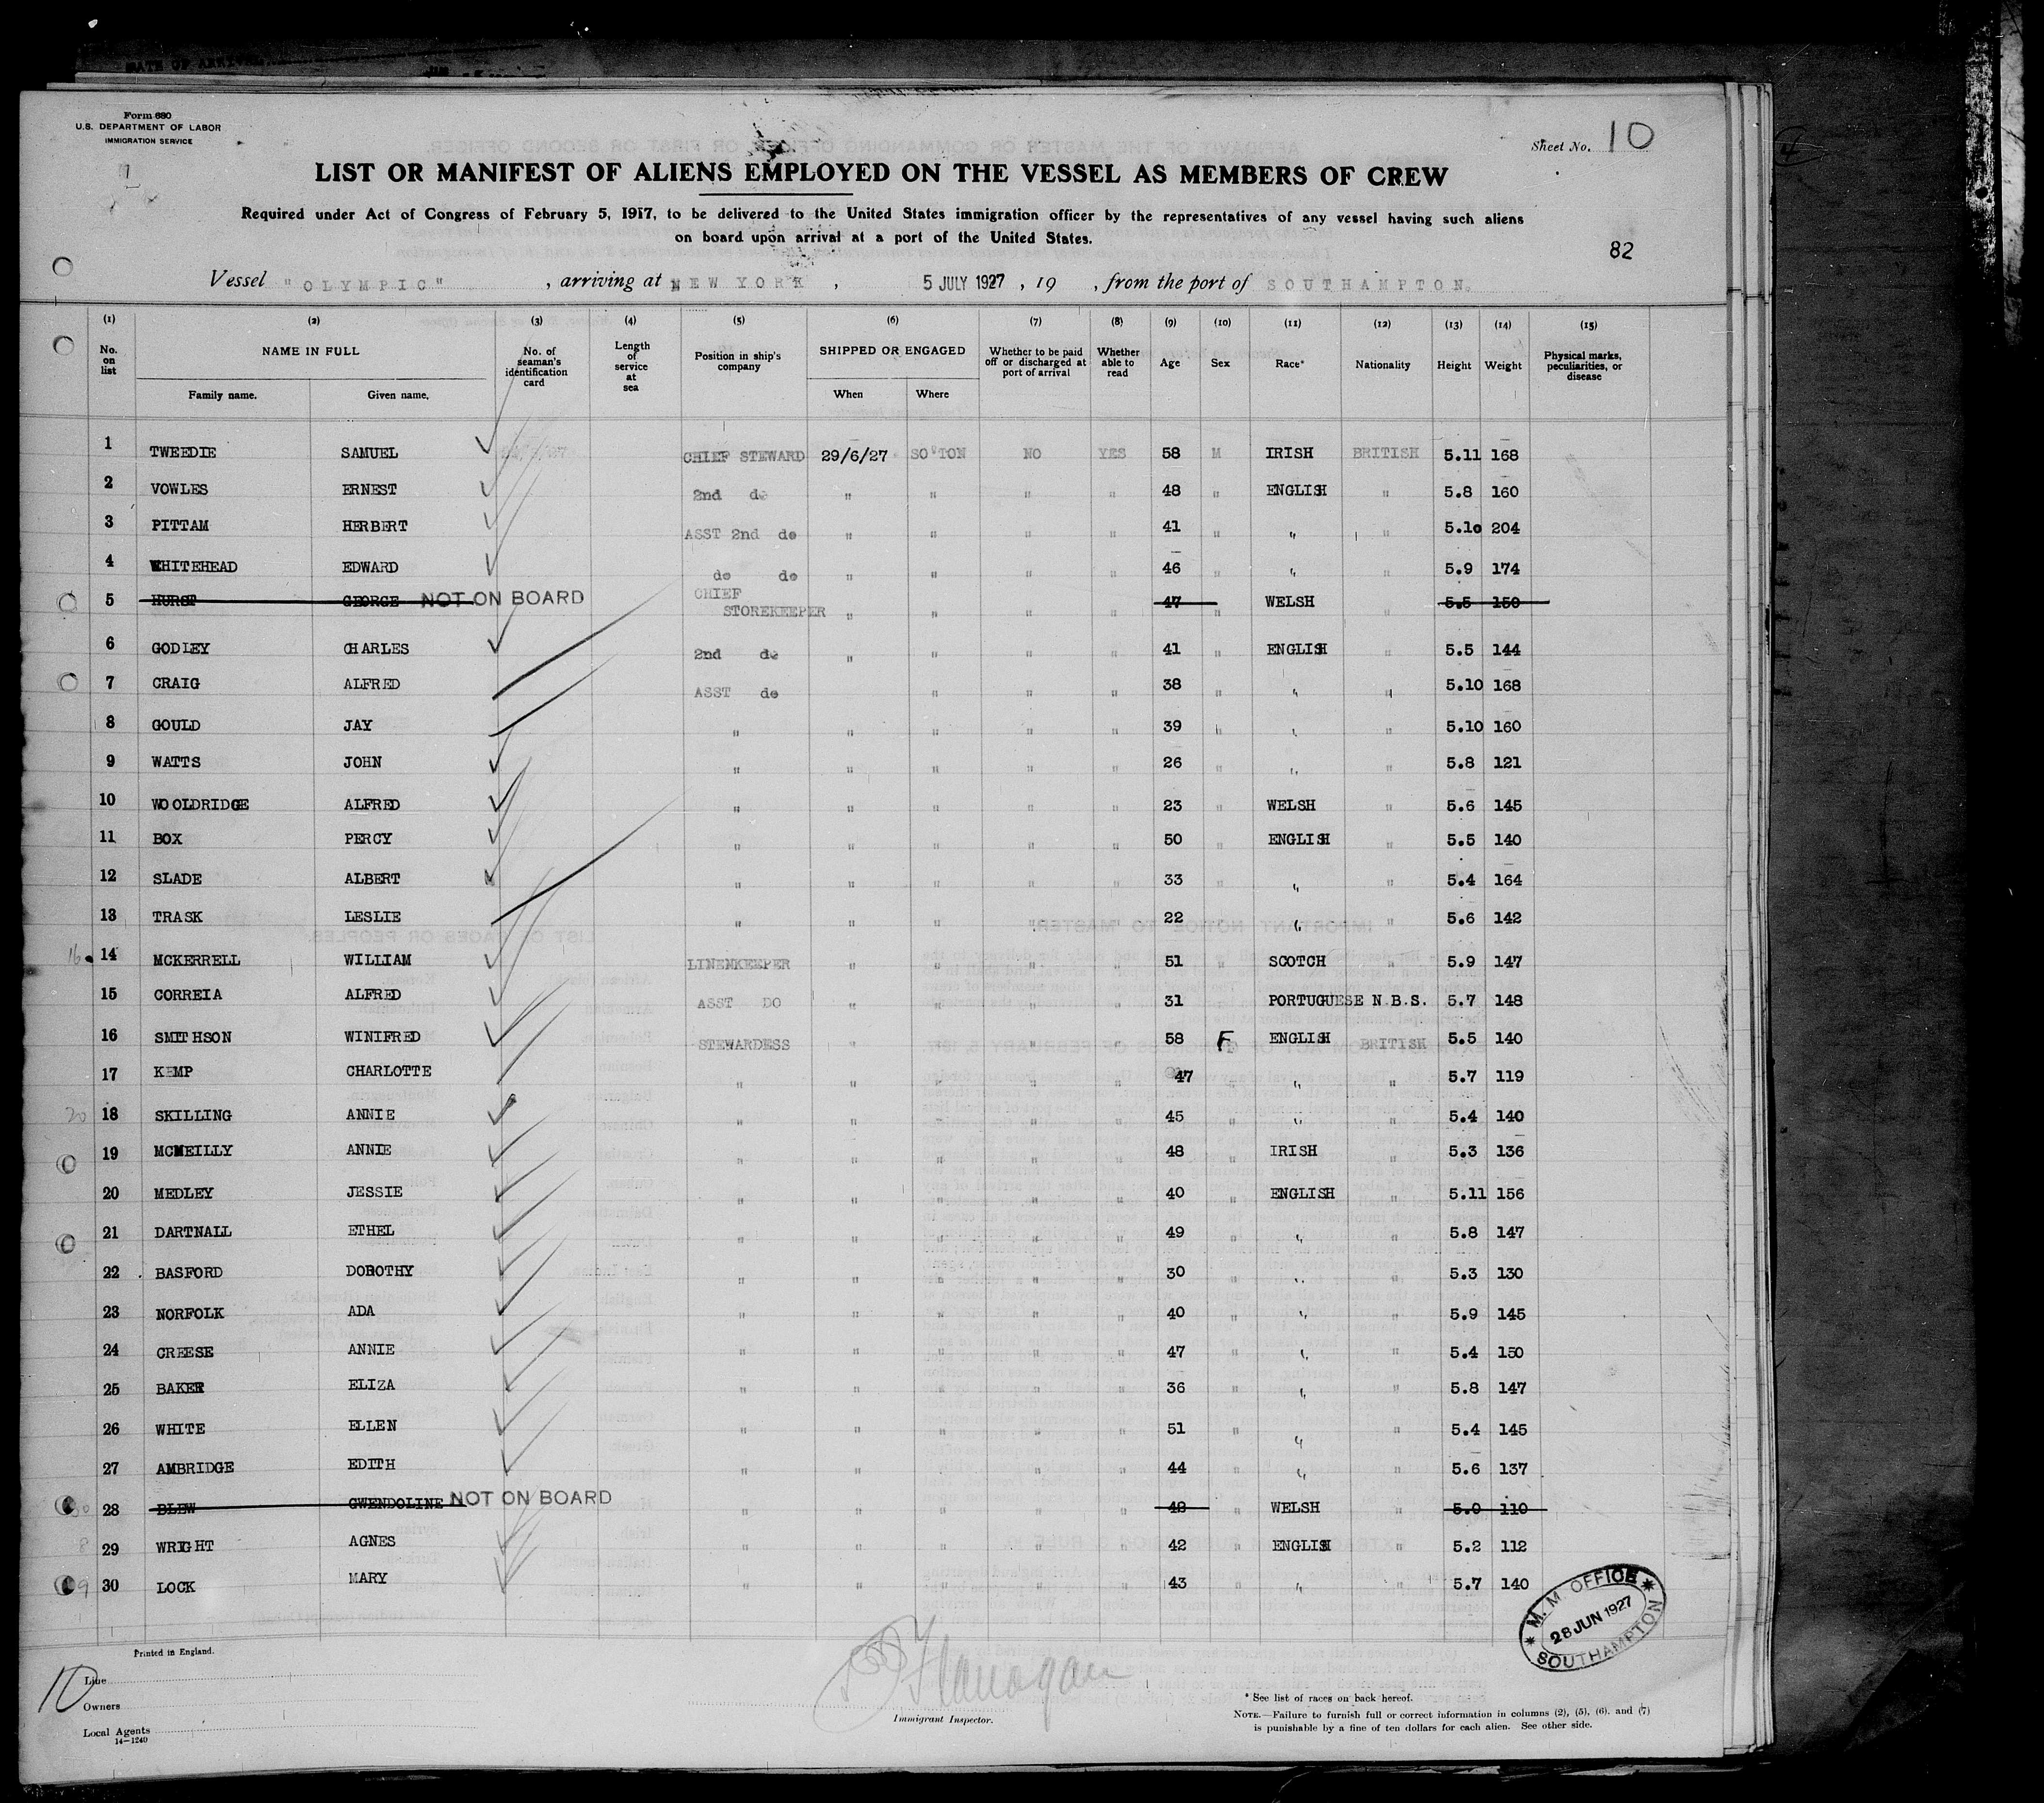 Form 680
U.S. DEPARTMENT OF LABOR
IMMIGRATION SERVICE
Sheet No. 10
LIST OR MANIFEST OF ALIENS EMPLOYED ON THE VESSEL AS MEMBERS OF CREW
Required under Act of Congress of February 5, 1917, to be delivered to the United States immigration officer by the representatives of any vessel having such aliens
on board upon arrival at a port of the United States.
82
Vessel "OLYMPIC", arriving at NEW YORK, 5 JULY 1927, 19 , from the port of SOUTHAMPTON.
(1) (2) (3) (4) (5) (6) (7) (8) (9) (10) (11) (12) (13) (14) (15)
No. on list NAME IN FULL No. of seaman's identification card Length of service at sea Position in ship's company SHIPPED OR ENGAGED Whether to be paid off or discharged at port of arrival Whether able to read Age Sex Race* Nationality Height Weight Physical marks, peculiarities, or disease
Family name. Given name. When Where
1 TWEEDIE SAMUEL CHIEF STEWARD 29/6/27 SO'TON NO YES 58 M IRISH BRITISH 5.11 168
2 VOWLES ERNEST 2nd do " " " " 48 " ENGLISH " 5.8 160
3 PITTAM HERBERT ASST 2nd do " " " " 41 " " " 5.10 204
4 WHITEHEAD EDWARD do do " " " " 46 " " " 5.9 174
5 HURST GEORGE NOT ON BOARD CHIEF STOREKEEPER " " " " 47 " WELSH 5.5 150
6 GODLEY CHARLES 2nd do " " " " 41 " ENGLISH " 5.5 144
7 CRAIG ALFRED ASST do " " " 38 " " " 5.10 168
8 GOULD JAY " " " " " 39 " " " 5.10 160
9 WATTS JOHN " " " " " 26 " " " 5.8 121
10 WOOLDRIDGE ALFRED " " " " " 23 " WELSH " 5.6 145
11 BOX PERCY " " " " " 50 " ENGLISH " 5.5 140
12 SLADE ALBERT " " " " " 33 " " " 5.4 164
13 TRASK LESLIE " " " " " 22 " " " 5.6 142
16 14 MCKERRELL WILLIAM LINENKEEPER " " " " 51 " SCOTCH " 5.9 147
15 CORREIA ALFRED ASST DO " " " " 31 " PORTUGUESE N.B.S. 5.7 148
16 SMITHSON WINIFRED STEWARDESS " " " " 58 F ENGLISH BRITISH 5.5 140
17 KEMP CHARLOTTE " " " " " 47 " " " 5.7 119
20 18 SKILLING ANNIE " " " " " 45 " " " 5.4 140
19 MCMEILLY ANNIE " " " " " 48 " IRISH " 5.3 136
20 MEDLEY JESSIE " " " " " 40 " ENGLISH " 5.11 156
21 DARTNALL ETHEL " " " " " 49 " " " 5.8 147
22 BASFORD DOROTHY " " " " " 30 " " " 5.3 130
23 NORFOLK ADA " " " " " 40 " " " 5.9 145
24 CREESE ANNIE " " " " " 47 " " " 5.4 150
25 BAKER ELIZA " " " " " 36 " " " 5.8 147
26 WHITE ELLEN " " " " " 51 " " " 5.4 145
27 AMBRIDGE EDITH " " " " " 44 " " " 5.6 137
28 BLEW GWENDOLINE NOT ON BOARD " " " " " 48 " WELSH " 5.0 110
29 WRIGHT AGNES " " " " " 42 " ENGLISH " 5.2 112
30 LOCK MARY " " " " " 43 " " " 5.7 140
* M. M. OFFICE *
28 JUN 1927
SOUTHAMPTON
Printed in England.
10
Line
Owners
Local Agents
14—1240
Flanagan
Immigrant Inspector.
* See list of races on back hereof.
NOTE.—Failure to furnish full or correct information in columns (2), (5), (6), and (7)
is punishable by a fine of ten dollars for each alien. See other side.